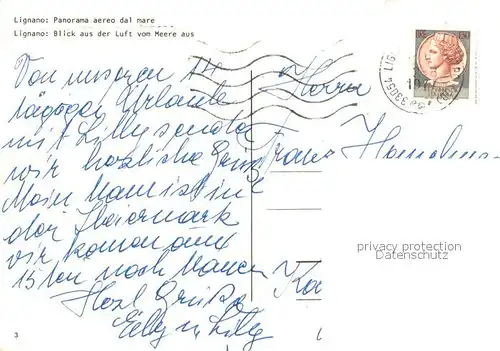 Lignano: Panorama aereo dal mare
Lignano: Blick aus der Luft vom Meere aus
Von unseren 14
tägigen Urlaube
mit Lilly senden
wir herzliche
Mein Mann ist in
der Steiermark
wir komen am
15ten nach
Herzl Grüße
Elly u Lilly
Herrn
Franz
33054 LIG
privacy protection
Datenschutz
3